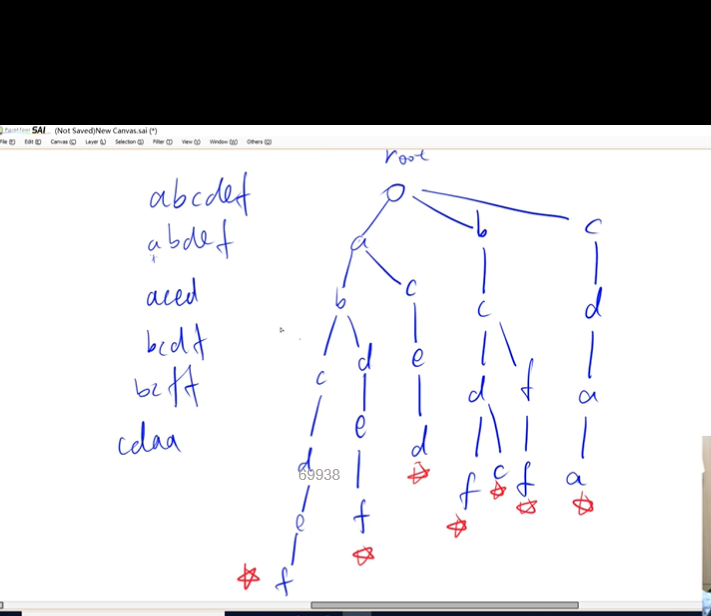 PaintTool SAI (Not Saved)New Canvas.sai (*)
File (F) Edit (E) Canvas (C) Layer (L) Selection (S) Filter (T) View (V) Window (W) Others (O)
root
abcdef
abdef
aced
bcdf
bcff
cdaa
a b c
b c c d
c d e d f a
d e d f c f a
e f
f
69938